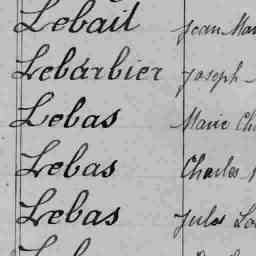 Lebail Jean Mar
Lebarbier Joseph
Lebas Marie Ch
Lebas Charles
Lebas Jules Lo